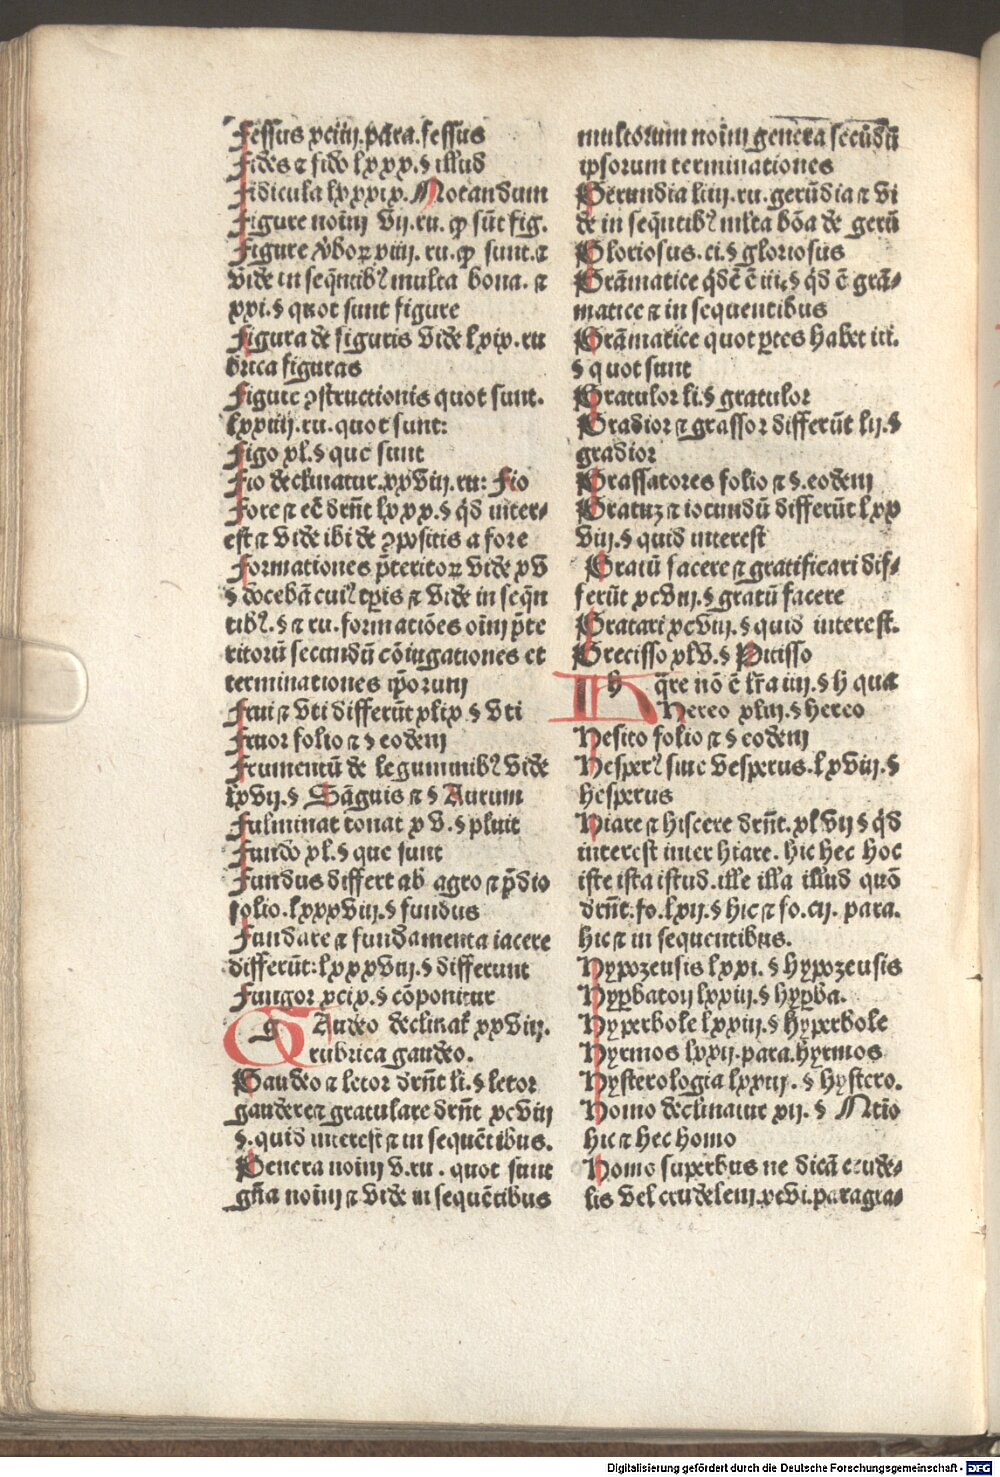 Fessus xciiij. para. fessus
Fides ⁊ fido lxxx. § illud
Fidicula lxxxix. Notandum
Figure noīm vij. ru. ꝙ sūt fig.
Figure v̓boꝝ xiiij. ru. ꝙ sunt. ⁊
vide in seq̄ntibꝰ multa bona. ⁊
xxi. § quot sunt figure
Figura de figuris vide lxix. ru
brica figuras
Figure ꝯstructionis quot sunt.
lxxiiij. ru. quot sunt:
Figo xl. § que sunt
Fio declinatur. xxviij. ru: Fio
Fore ⁊ eē drn̄t lxxx. § q̄d inter⸗
est ⁊ vide ibi de ꝯpositis a fore
Formationes p̄teritoꝝ vide xv
§ docebā cuiꝰ tꝑis ⁊ vide in seq̄n
tibꝰ. § ⁊ ru. formatiōes oīm p̄te
ritorū secundū cōiugationes et
terminationes ip̄orum
Frui ⁊ vti differūt xlix § vti
Fruor folio ⁊ § eodem
Frumentū de leguminibꝰ vide
lxvij. § Sāguis ⁊ § Aurum
Fulminat tonat xv. § pluit
Fundo xl. § que sunt
Fundus differt ab agro ⁊ p̄dio
folio. lxxxviij. § fundus
Fundare ⁊ fundamenta iacere
differūt: lxxxviij. § differunt
Fungor xcix. § cōponitur
g Audeo declinat̄ xxviij.
rubrica gaudeo.
Gaudeo ⁊ letor drn̄t li. § letor
gaudere ⁊ gratulare drn̄t xcviij
§. quid interest ⁊ in sequētibus.
Genera noīm v. ru. quot sunt
gn̄a noīm ⁊ vide in sequētibus
multorum noīm genera secūdū
ipsorum terminationes
Gerundia liiij. ru. gerūdia ⁊ vi
de in seq̄ntibꝰ mlta bōa de gerū
Gloriosus. ci. § gloriosus
Grāmatice q̄dē ē iij. § q̄d ē grā⸗
matice ⁊ in sequentibus
Grāmatice quot ꝑtes habet iij.
§ quot sunt
Gratulor li. § gratulor
Gradior ⁊ grassor differūt lij. §
gradior
Grassatores folio ⁊ §. eodem
Gratuꝫ ⁊ iocundū differūt lxx
viij. § quid interest
Gratū facere ⁊ gratificari dif⸗
ferūt xcviij. § gratū facere
Gratari xcviij. § quid interest.
Grecisso xlv. § Pitisso
h q̄re nō ē lr̄a iiij. § h qua
Hereo xliij. § hereo
Hesito folio ⁊ § eodem
Hesperꝰ siue vesperus. lxviij. §
hesperus
Hiare ⁊ hiscere drn̄t. xlvij § q̄d
interest inter hiare. hic hec hoc
iste ista istud. ille illa illud quō
drn̄t. fo. lxij. § hic ⁊ fo. cij. para.
hic ⁊ in sequentibus.
Hypozeusis lxxi. § hypozeusis
Hyꝑbaton lxxiij. § hyꝑba.
Hyperbole lxxiij. § hyperbole
Hyrmos lxxij. para. hyrmos
Hysterologia lxxiij. § hystero.
Homo declinatur xij. § Ntio
hic ⁊ hec homo
Homo superbus ne dicā crude⸗
lis vel crudelem. xcvi. paragra⸗
Digitalisierung gefördert durch die Deutsche Forschungsgemeinschaft - DFG